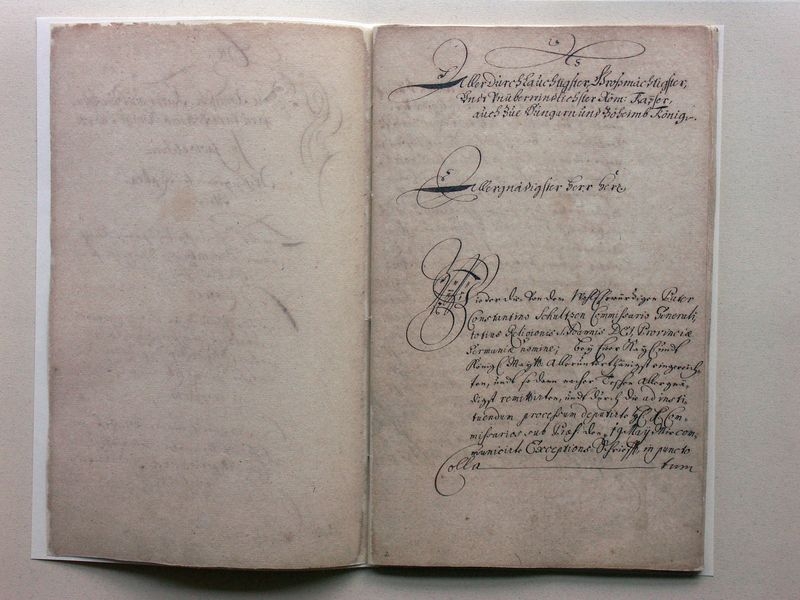 Allerdurchläuchtigster, Großmächtigster,
Undt Unüberwindlichster Röm: Kayser,
auch Zue Hungarn undt Böheimb König.
Allergnädigster Herr Herr
Wieder die Von dem WohlEhrwürdigen Pater
Constantino Schultzen Commissario Generali
totius Religionis S. Joannis DEI Provinciæ
Germaniæ nomine; bey Euer Kay: undt
König: May: Allerunterthänigst eingereich-
ten, undt so dann nacher Teschen Allergnä-
digst remittirten, undt durch die ad insti-
tuendum processum deputirte Com-
missarios sub Præs: den 19 May Mir com-
municirte Exceptions Schrifft, in puncto
Colla tum